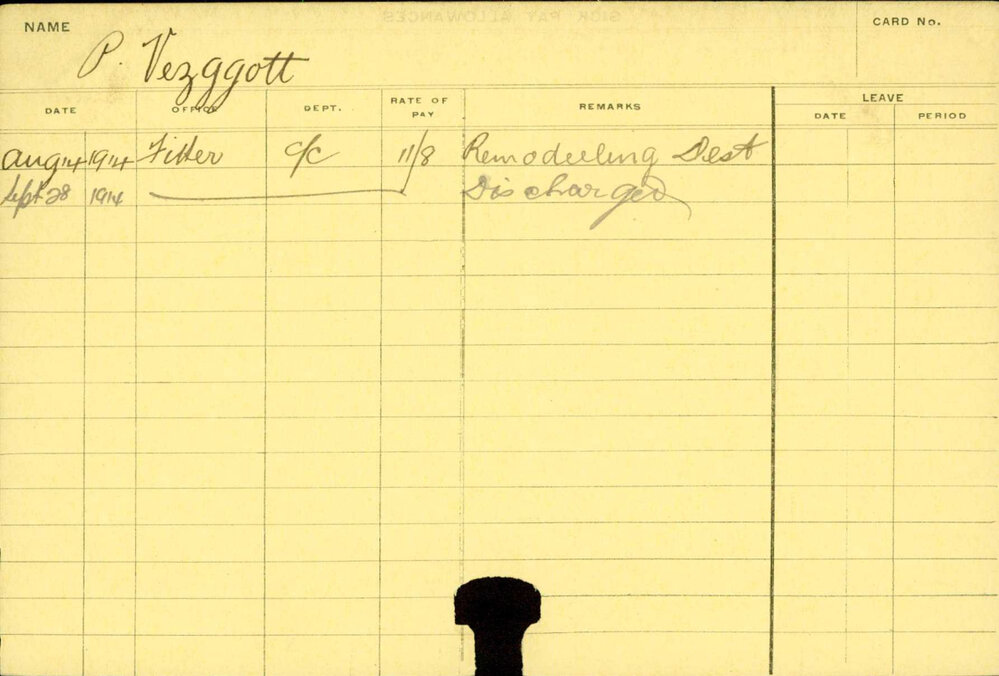 SICK PAY ALLOWANCES
NAME P. Vezggott CARD No.
DATE OFFICE DEPT. RATE OF PAY REMARKS LEAVE
DATE PERIOD
Aug 14 1914 Fitter C/C 11/8 Remodeeling Dest
Sept 28 1914 Discharged